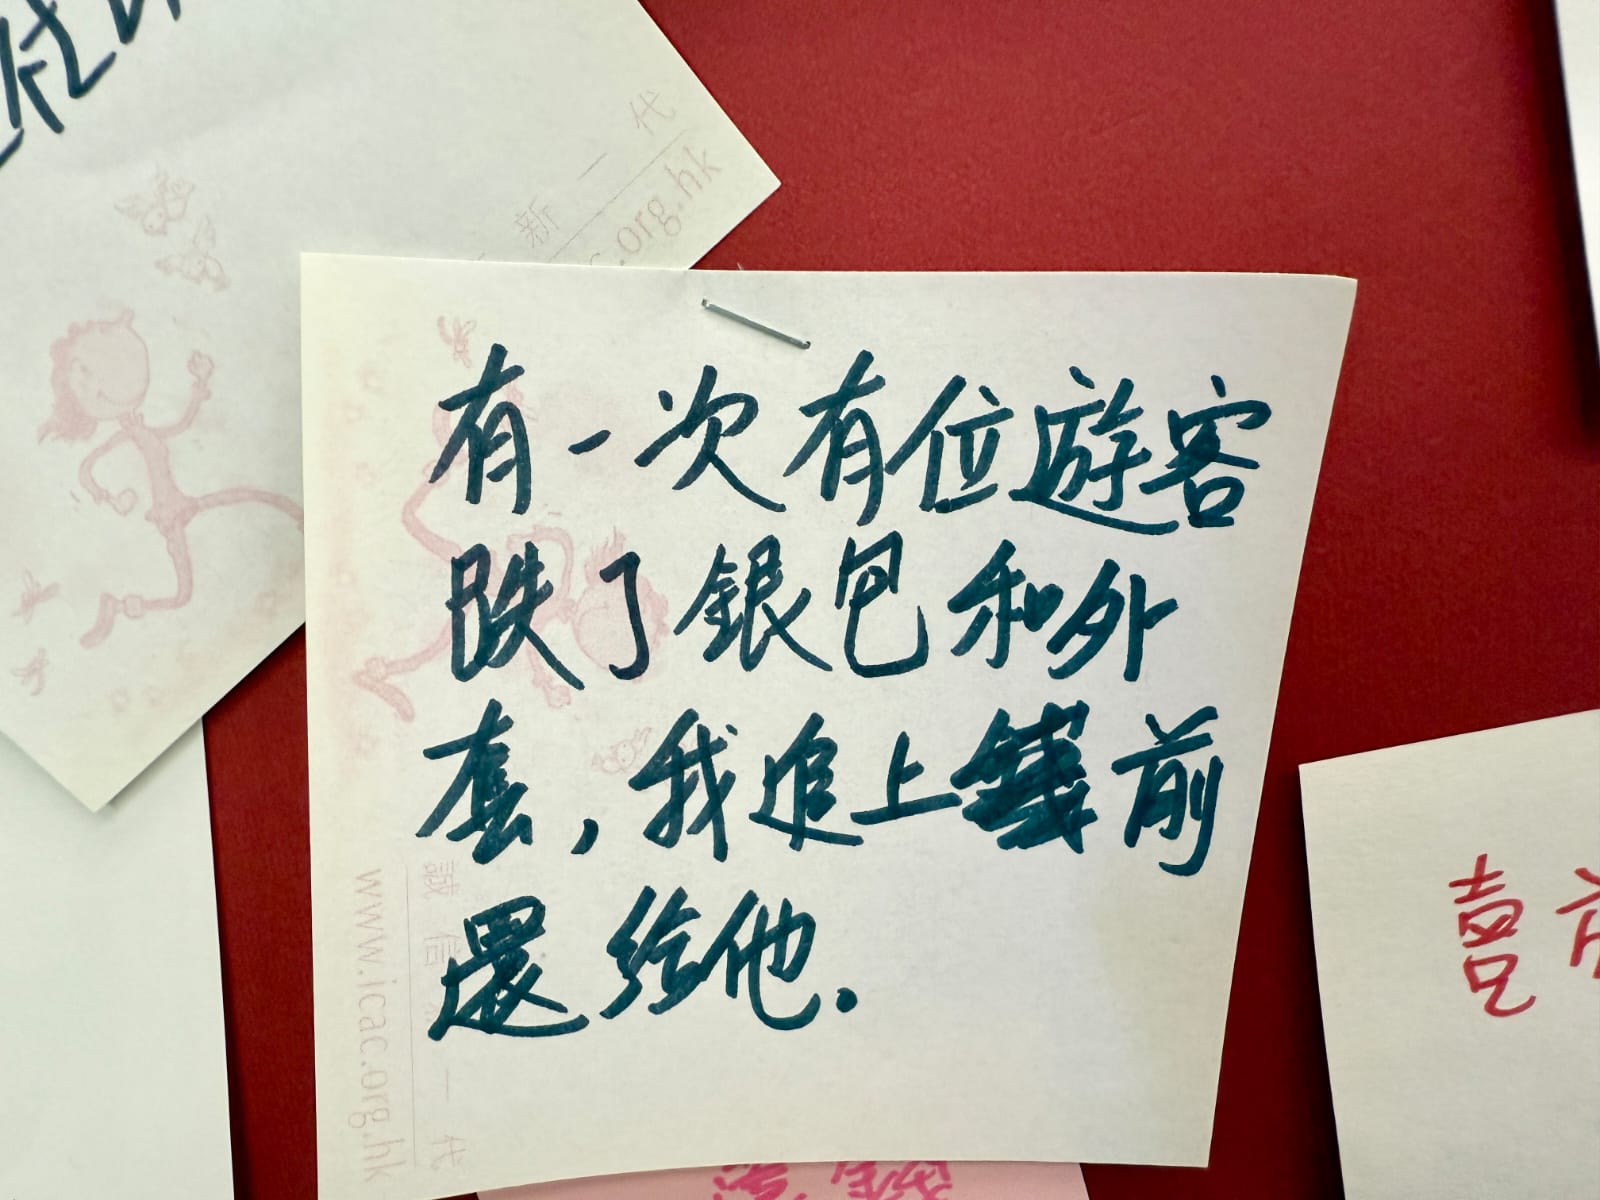 新一代
.org.hk
有一次有位遊客
跌了銀包和外
套，我追上前
還給他.
誠信新一代
www.icac.org.hk
喜